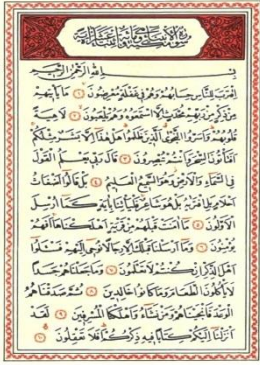 سورة الأنبياء مكية وهي مائة واثنتا عشرة آية
بسم الله الرحمن الرحيم
اقترب للناس حسابهم وهم في غفلة معرضون ١ ما يأتيهم
من ذكر من ربهم محدث إلا استمعوه وهم يلعبون ٢ لاهية
قلوبهم وأسروا النجوى الذين ظلموا هل هذا إلا بشر مثلكم
أفتأتون السحر وأنتم تبصرون ٣ قال ربي يعلم القول
في السماء والأرض وهو السميع العليم ٤ بل قالوا أضغاث
أحلام بل افتراه بل هو شاعر فليأتنا بآية كما أرسل
الأولون ٥ ما آمنت قبلهم من قرية أهلكناها أفهم
يؤمنون ٦ وما أرسلنا قبلك إلا رجالا نوحي إليهم فسئلوا
أهل الذكر إن كنتم لا تعلمون ٧ وما جعلناهم جسدا
لا يأكلون الطعام وما كانوا خالدين ٨ ثم صدقناهم
الوعد فأنجيناهم ومن نشاء وأهلكنا المسرفين ٩ لقد
أنزلنا إليكم كتابا فيه ذكركم أفلا تعقلون ١٠